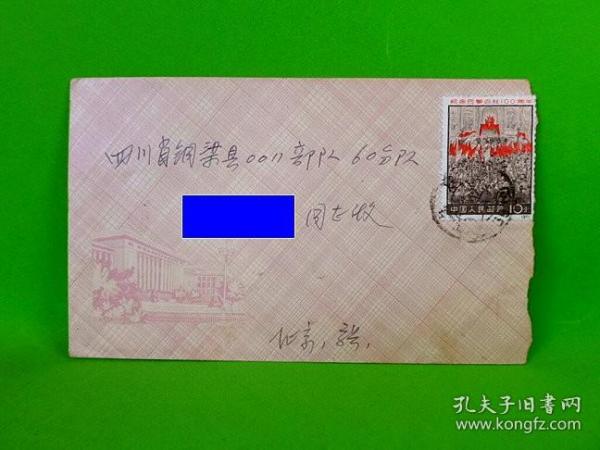 纪念巴黎公社100周年
中国人民邮政 10分
四川省铜梁县0011部队60分队
同志收
北京，
孔夫子旧书网
www.kongfz.com